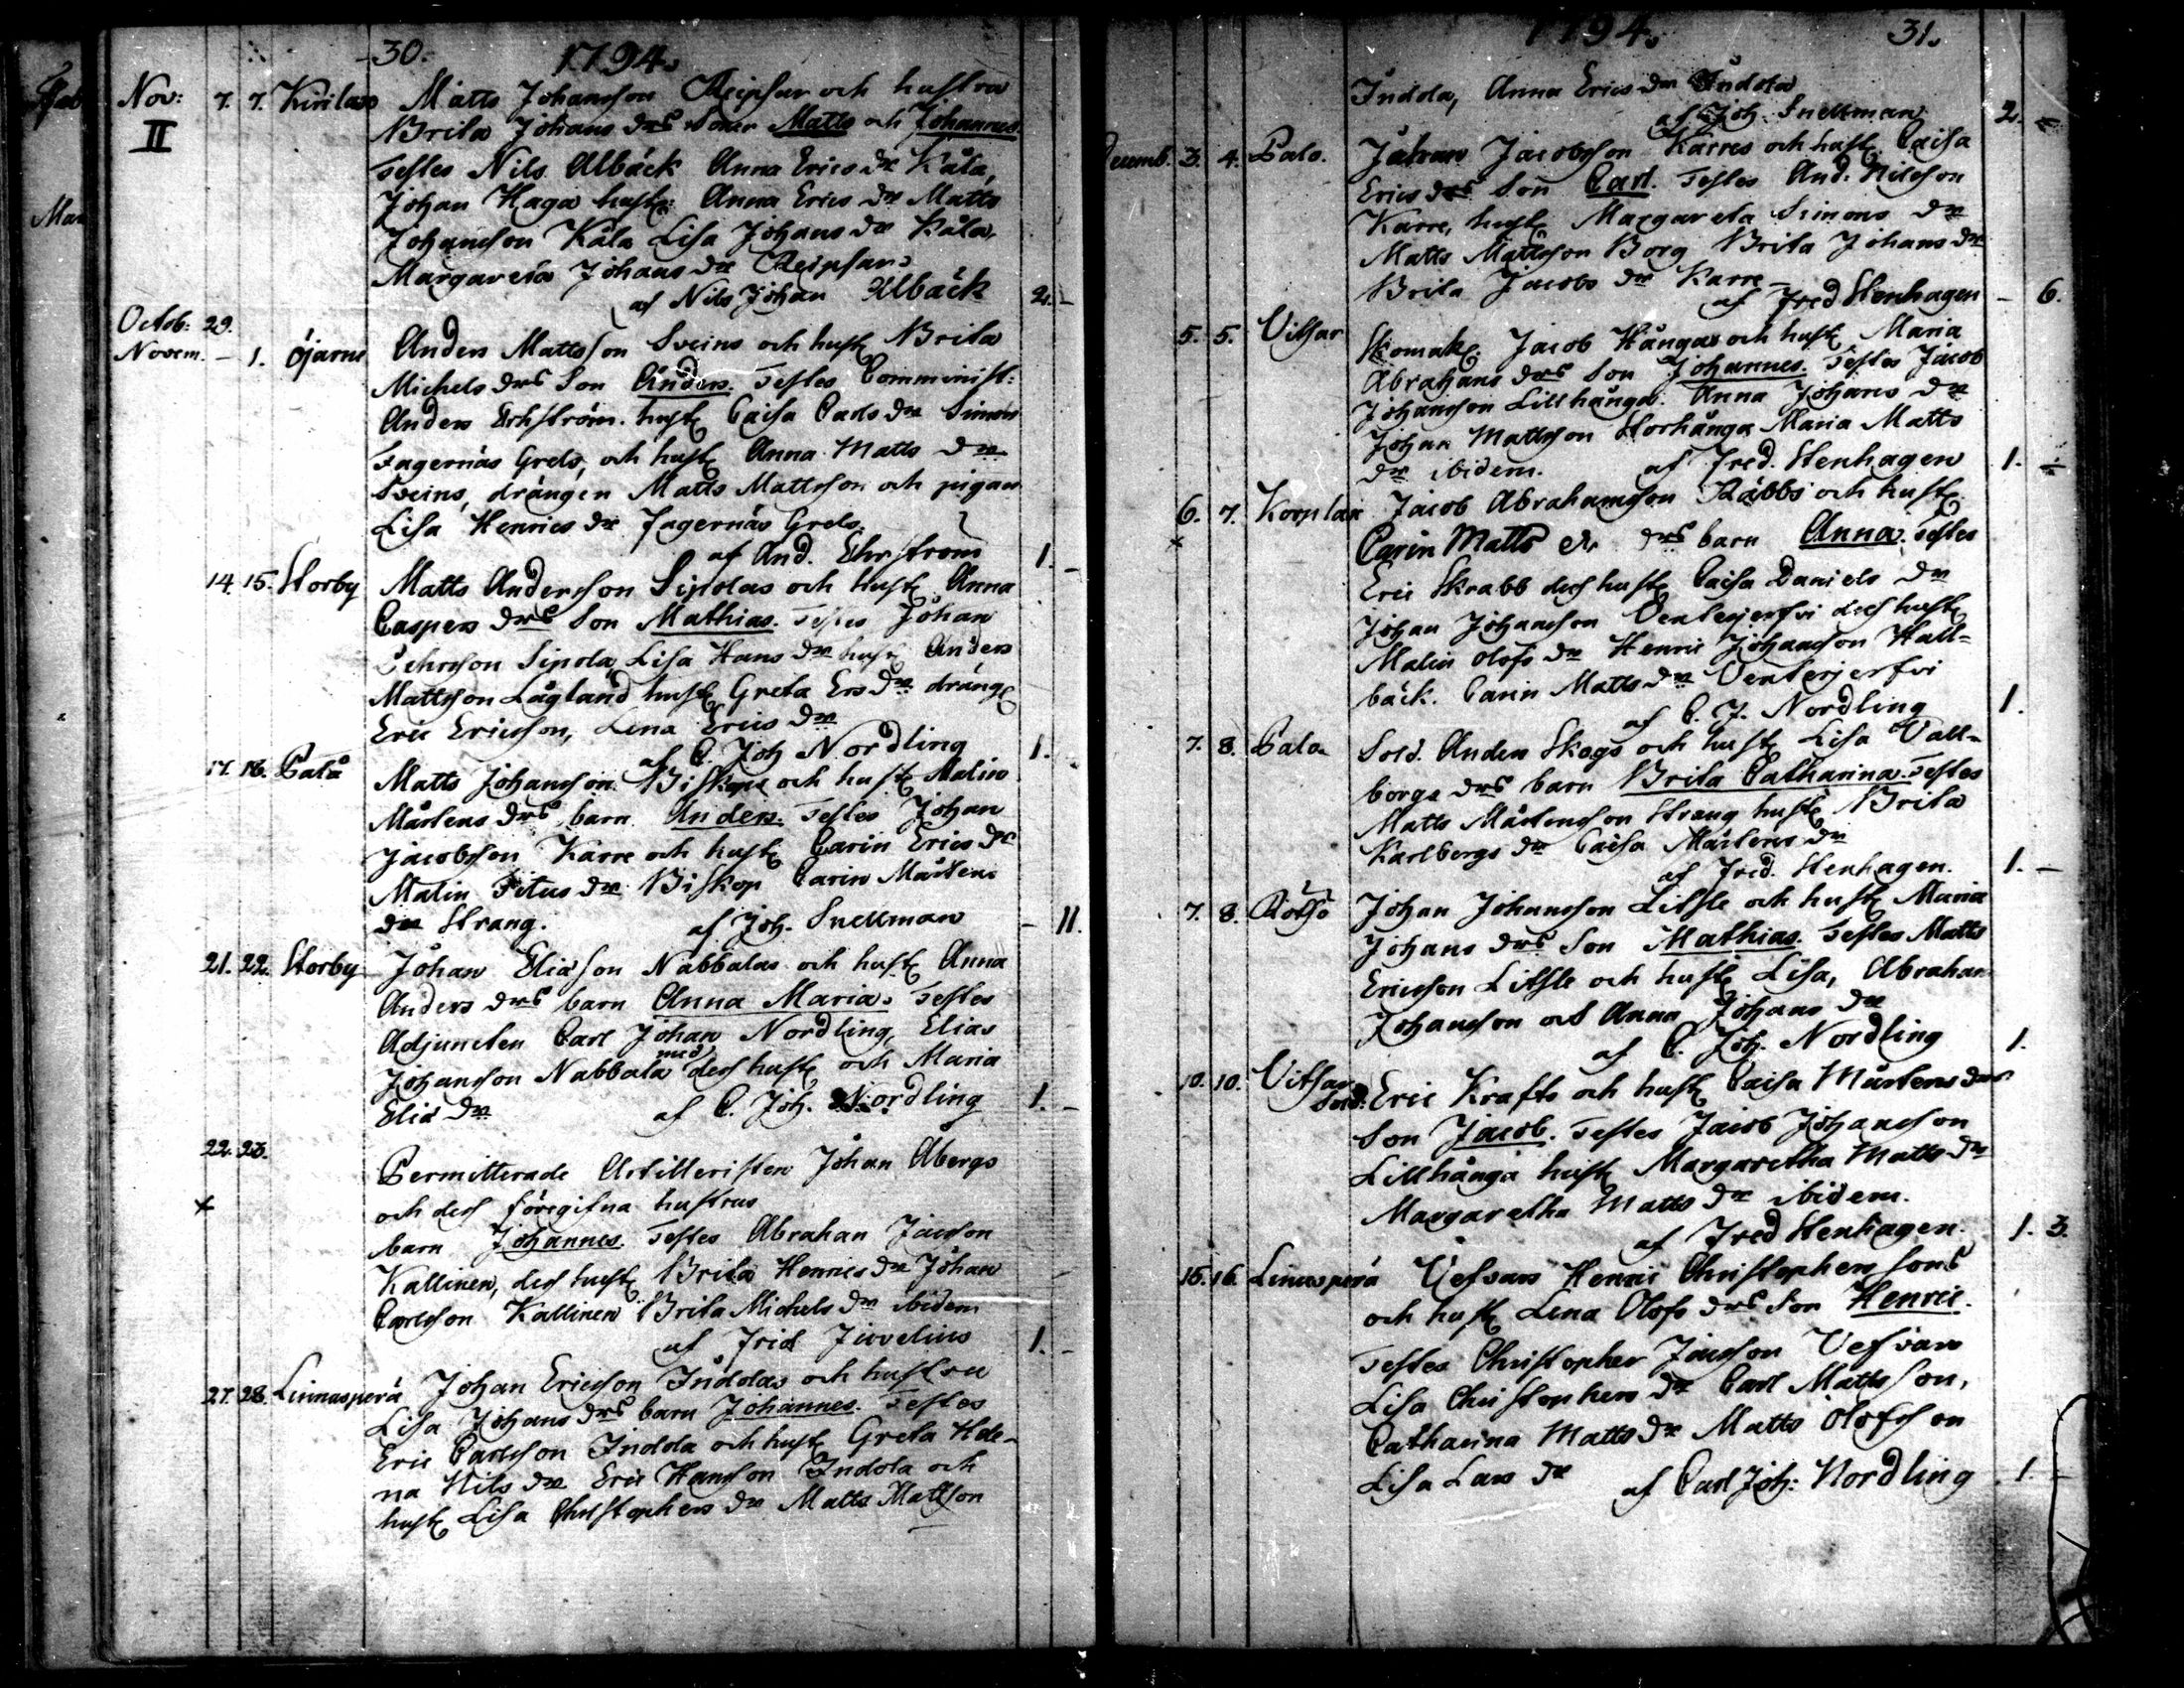 30. 1794.
Nov: 7. 7. Kirilax Matts Johansson Reipsar och hustru
II Brita Johans drs Söner Matts och Johannes
Testes Nils Albäck Anna Erics dr Kåla,
Johan Haga hustr: Anna Erics dr Matts
Johansson Kåla Lisa Johans dr Kåla,
Margareta Johans dr Reipsar
af Nils Johan Albäck 2. -
Octob: 29.
Novem. - 1. Öjarne Anders Mattsson Sveins och hustr Brita
Michels drs Son Anders. Testes Comminist:
Anders Ehrström. hustr Caisa Carls dr Simon
Fagernäs Grels, och hustr Anna Matts dr
Sveins, drängen Matts Mattsson och pigan
Lisa Henrics dr Fagernäs Grels.
af And. Ehrström 1. -
14. 15. Storby Matts Andersson Sipolas och hustr Anna
Caspers drs Son Mathias. Testes Johan
Sipola, Lisa Hans dr hustr Anders
Mattsson Lågland hustr Greta Ers dr dräng
Eric Ericsson, Lena Erics dr
af C. Joh Nordling 1. -
17. 18. Palå Matts Johansson Biskops och hustr Malin
Mårtens drs barn Anders. Testes Johan
Jacobsson Karre och hustr Carin Erics dr
Malin Titus dr Biskop Carin Mårtens
dr Strang. af Joh. Snellman - 11.
21. 22. Storby Johan Eliasson Nabbalas och hustr Anna
Anders drs barn Anna Maria. Testes
Adjuncten Carl Johan Nordling, Elias
Johansson Nabbala med dess hustr och Maria
Elia dr af C. Joh. Nordling 1. -
22. 23. Permitterade Artilleristen Johan Åbergs
x och dess föregifna hustrus
barn Johannes. Testes Abraham Jacsson
Kallinen, dess hustr Brita Henrics dr Johan
Carlsson Kallinen Brita Michels dr ibidem
af Fred Juvelius 1. -
27. 28. Linnasperä Johan Ericsson Indolas och hustru
Lisa Johans drs barn Johannes. Testes
Eric Carlsson Indola och hustr Greta Hele-
na Nils dr Eric Hansson Indola och
hustr Lisa Christophers dr Matts Mattson
1794. 31.
Indola, Anna Erics dr Indola
af Joh Snellman 2. -
Decemb. 3. 4. Palo. Johan Jacobsson Karres och hustr. Caisa
Erics drs Son Carl. Testes And. Nilsson
Karre, hustr Margareta Simons dr
Matts Mattsson Borg Brita Johans dr
Brita Jacobs dr Karre
af Fred Stenhagen - 6.
5. 5. Vitsar Skomak. Jacob Hångas och hustr Maria
Abrahams drs Son Johannes. Testes Jacob
Johansson Lillhånga. Anna Johans dr
Johan Mattsson Storhånga Maria Matts
dr ibidem. af Fred. Stenhagen 1. -
6. 7. Korplax Jacob Abrahamsson Räbbs och hustr
x Carin Matts drs barn Anna. Testes
Eric Skrabb dess hustr Caisa Daniels dr
Johan Johansson Ventejerfvi dess hustr
Malin Olofs dr Henric Johansson Hall-
bäck. Carin Matts dr Ventejerfvi
af C. J. Nordling 1.
7. 8. Palo. Sold. Anders Skogs och hustr Lisa Vall-
borgs drs barn Brita Catharina. Testes
Matts Mårtensson Strang hustr Brita
Karlbergs dr Caisa Mårtens dr
af Fred. Stenhagen. 1. -
7. 8. Rösö Johan Johansson Litsle och hustr Maria
Johans drs Son Mathias. Testes Matts
Ericsson Litsle och hustr Lisa, Abraham
Johansson och Anna Johans dr
af C. Joh. Nordling 1.
10. 10. Vitsar Sold: Eric Krafts och hustr Caisa Mårtens drs
Son Jacob. Testes Jacob Johansson
Lillhånga hustr Margaretha Matts dr
Margaretha Matts dr ibidem.
af Fred Stenhagen. 1. 3.
15. 16. Linnasperä Vesvars Henric Christophers sons
och hustr Lena Olofs drs Son Henric.
Testes Christopher Jacsson Vesvars
Lisa Christophers dr Carl Matts son,
Catharina Matts dr Matts Olofsson
Lisa Lars dr af Carl Joh: Nordling 1. -